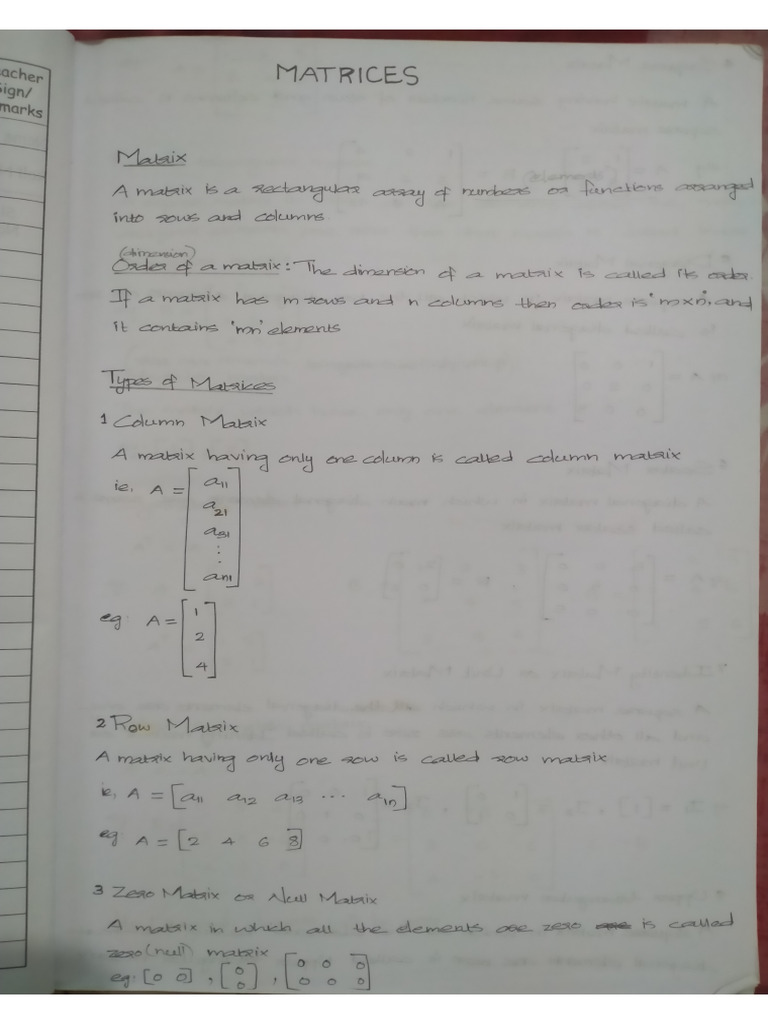 eacher
Sign/
marks
MATRICES
Matrix
A matrix is a rectangular array of numbers or functions arranged
into rows and columns.
(dimension)
Order of a matrix: The dimension of a matrix is called its order.
If a matrix has m rows and n columns then order is 'm×n', and
it contains 'mn' elements
Types of Matrices
1 Column Matrix
A matrix having only one column is called column matrix
ie, A = [a11
a21
a31
⋮
am1]
eg: A = [1
2
4]
2 Row Matrix
A matrix having only one row is called row matrix
ie, A = [a11 a12 a13 ... a1n]
eg: A = [2 4 6 8]
3 Zero Matrix or Null Matrix
A matrix in which all the elements are zero is called
zero (null) matrix
eg: [0 0], [0
0], [0 0 0
0 0 0]